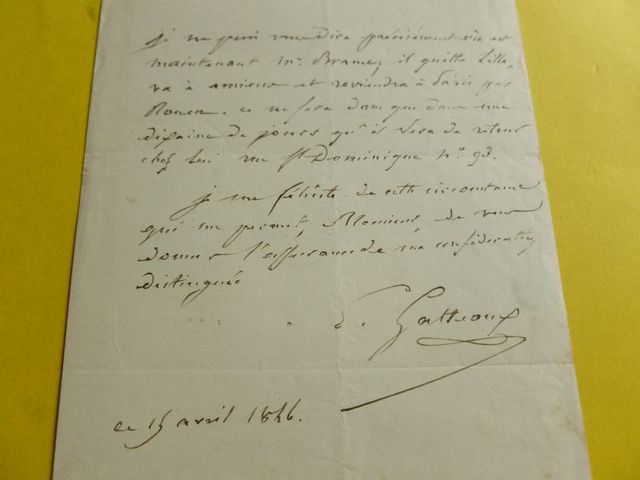 je ne puis vous dire précisément où est
maintenant Mr. Brame, il quitte Lille,
va à amiens et reviendra à Paris par
Rouen. ce ne sera donc que dans une
dixaine de jours qu'il sera de retour
chez lui rue St Dominique No. 93.
je me félicite de cette circonstance
qui me permet, Monsieur de vous
donner l'assurance de ma considération
distinguée
E. Gatteaux
ce 15 avril 1846.